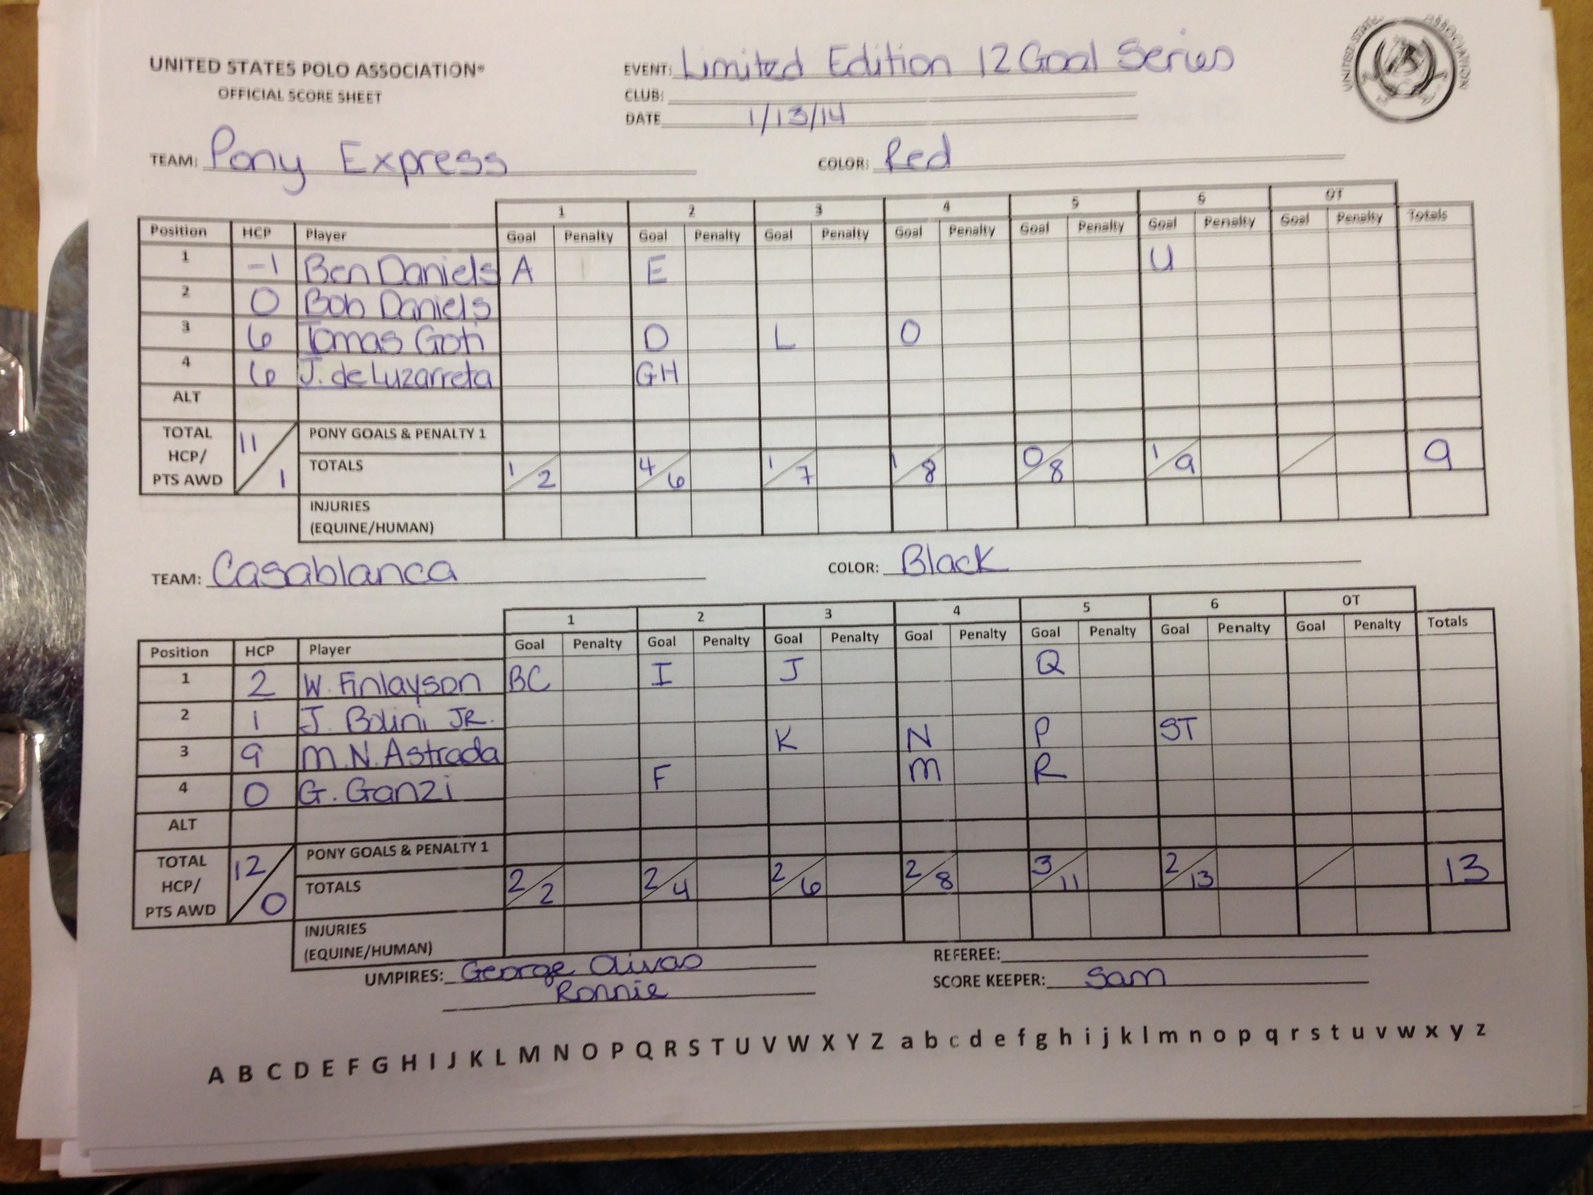 UNITED STATES POLO ASSOCIATION®
OFFICIAL SCORE SHEET
EVENT: Limited Edition 12 Goal Series
CLUB:
DATE 1/13/14
UNITED STATES ASSOCIATION
TEAM: Pony Express COLOR: Red
1 2 3 4 5 6 OT
Position HCP Player Goal Penalty Goal Penalty Goal Penalty Goal Penalty Goal Penalty Goal Penalty Goal Penalty Totals
1 -1 Ben Daniels A E U
2 0 Bob Daniels
3 6 Tomas Goti D L O
4 6 J. de Luzarreta GH
ALT
TOTAL HCP/ PTS AWD 11/1 PONY GOALS & PENALTY 1
TOTALS 1/2 4/6 1/7 1/8 0/8 1/9 / 9
INJURIES (EQUINE/HUMAN)
TEAM: Casablanca COLOR: Black
1 2 3 4 5 6 OT
Position HCP Player Goal Penalty Goal Penalty Goal Penalty Goal Penalty Goal Penalty Goal Penalty Goal Penalty Totals
1 2 W. Finlayson BC I J Q
2 1 J. Bolini JR.
3 9 M.N. Astrada K N P ST
4 0 G. Ganzi F M R
ALT
TOTAL HCP/ PTS AWD 12/0 PONY GOALS & PENALTY 1
TOTALS 2/2 2/4 2/6 2/8 3/11 2/13 / 13
INJURIES (EQUINE/HUMAN)
UMPIRES: George Olivas REFEREE:
Ronnie SCORE KEEPER: Sam
A B C D E F G H I J K L M N O P Q R S T U V W X Y Z a b c d e f g h i j k l m n o p q r s t u v w x y z